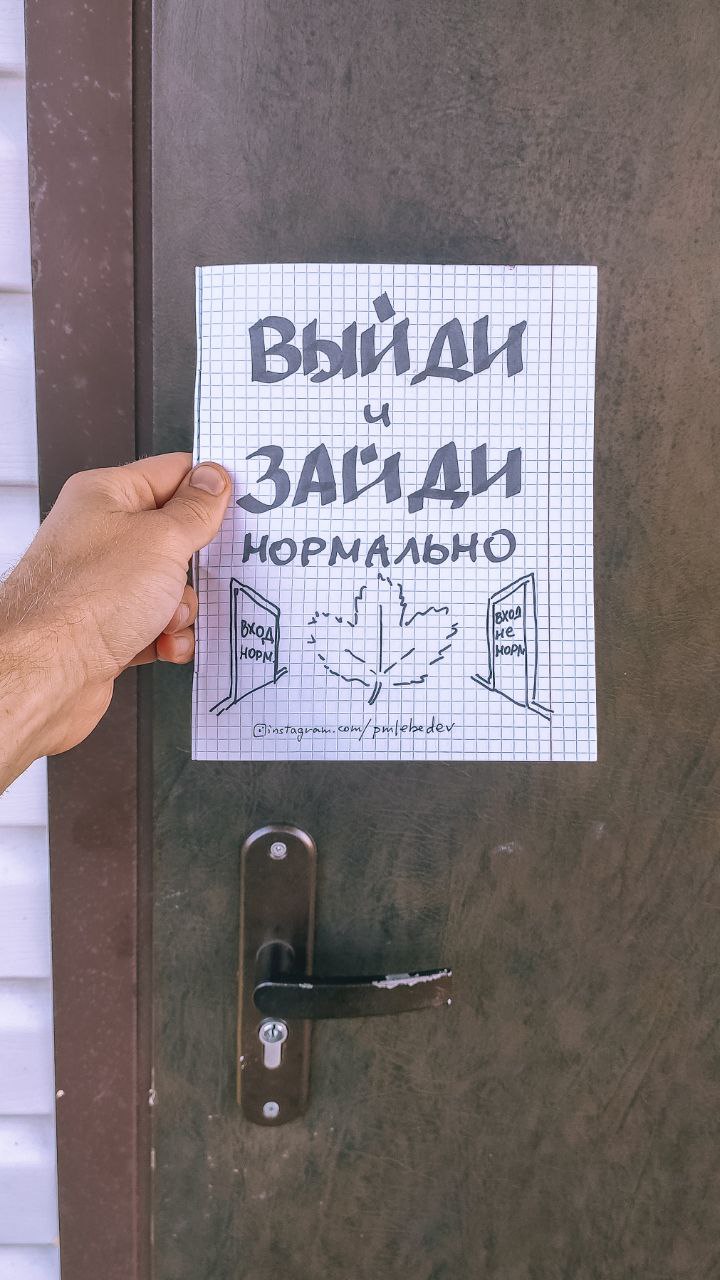 ВЫЙДИ
и
ЗАЙДИ
НОРМАЛЬНО
ВХОД
НОРМ.
ВХОД
НЕ
НОРМ
instagram.com/pmlebedev